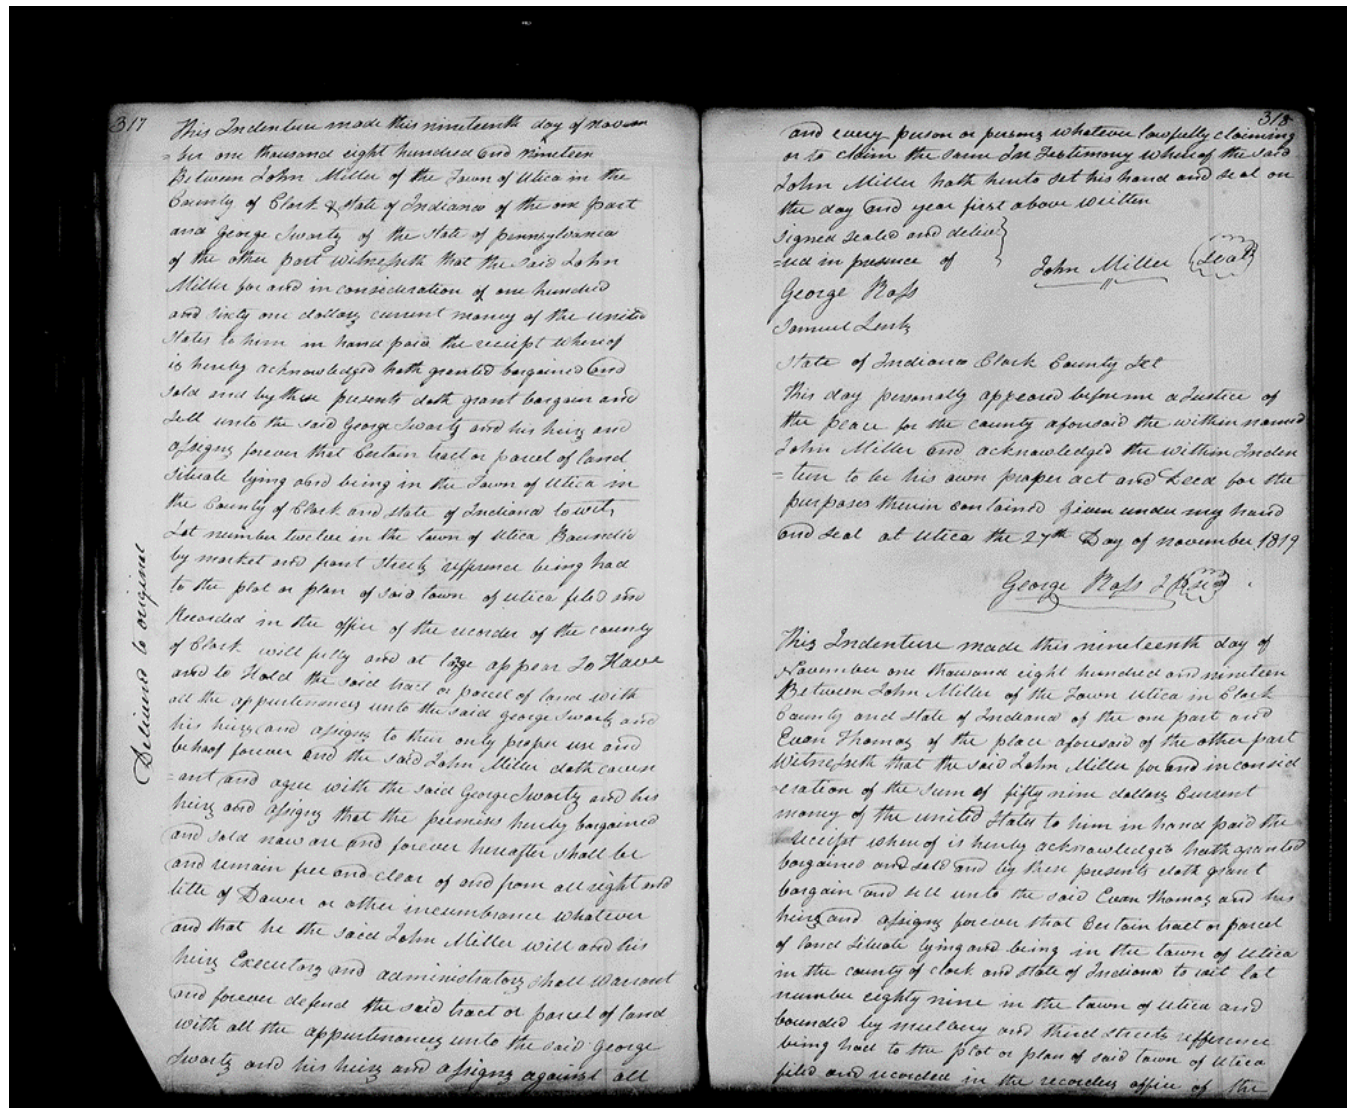 317
This Indenture made this nineteenth day of novem
=ber one thousand eight hundred and nineteen
Between John Miller of the Town of Utica in the
County of Clark & State of Indiana of the one part
and George Swartz of the State of Pennsylvania
of the other part witnesseth that the said John
Miller for and in consideration of one hundred
and sixty one dollars current money of the united
States to him in hand paid the receipt whereof
is hereby acknowledged hath granted bargained and
sold and by these presents doth grant bargain and
Sell unto the said George Swartz and his heirs and
assigns forever that Certain tract or parcel of land
Situate lying and being in the Town of Utica in
the County of Clark and state of Indiana to wit,
Lot number twelve in the town of Utica Bounded
by market and front streets refference being had
to the plot or plan of said town of utica filed and
Recorded in the office of the recorder of the county
of Clark will fully and at large appear To Have
and to Hold the said tract or parcel of land with
all the appurtenances unto the said George Swartz and
his heirs and assigns to their only proper use and
behoof forever and the said John Miller doth coven
=ant and agree with the said George Swartz and his
heirs and assigns that the premises hereby bargained
and sold now are and forever hereafter shall be
and remain free and clear of and from all right and
title of Dower or other incumbrance whatever
and that he the said John Miller will and his
heirs Executors and administrators shall warrant
and forever defend the said tract or parcel of land
with all the appurtenances unto the said George
Swartz and his heirs and assigns against all
Delivered to original
318
and every person or persons whatever lawfully claiming
or to claim the same In Testimony whereof the said
John Miller hath hereto set his hand and seal on
the day and year first above written
signed sealed and deliv
=ered in presence of
John Miller (Seal)
George Ross
Samuel Lentz
State of Indiana Clark County Sct
This day personally appeared before me a Justice of
the peace for the county aforesaid the within named
John Miller and acknowledged the within Inden
=ture to be his own proper act and Deed for the
purposes therein contained given under my hand
and seal at Utica the 27th Day of november 1819
George Ross J P (Seal)
This Indenture made this nineteenth day of
November one thousand eight hundred and nineteen
Between John Miller of the Town Utica in Clark
County and state of Indiana of the one part and
Evan Thomas of the place aforesaid of the other part
Witnesseth that the said John Miller for and in consid
=eration of the sum of fifty nine dollars Current
money of the united States to him in hand paid the
receipt whereof is hereby acknowledged hath granted
bargained and sold and by these presents doth grant
bargain and sell unto the said Evan Thomas and his
heirs and assigns forever that Certain tract or parcel
of land Situate lying and being in the town of Utica
in the county of clark and state of Indiana to wit lot
number eighty nine in the town of Utica and
bounded by mulbery and third streets refference
being had to the plot or plan of said town of Utica
filed and recorded in the recorders office of the